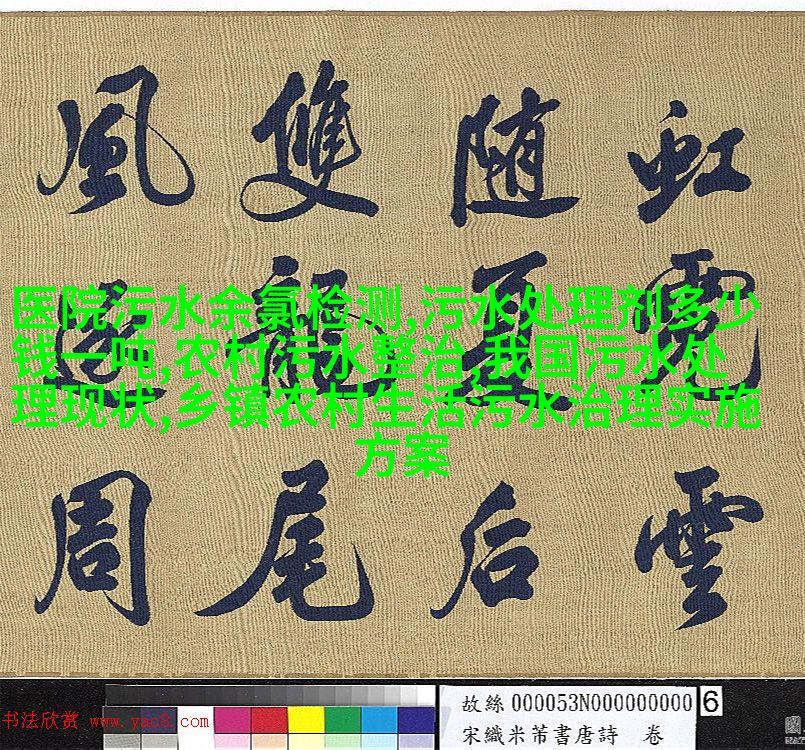 虹霓雲
随夏后
雙龍尾
風逐周
医院污水余氯检测,污水处理剂多少
钱一吨,农村污水整治,我国污水处
理现状,乡镇农村生活污水治理实施
方案
书法欣赏 www.yac8.com
故絲 000053N000000000 6
宋織米芾書唐詩 卷